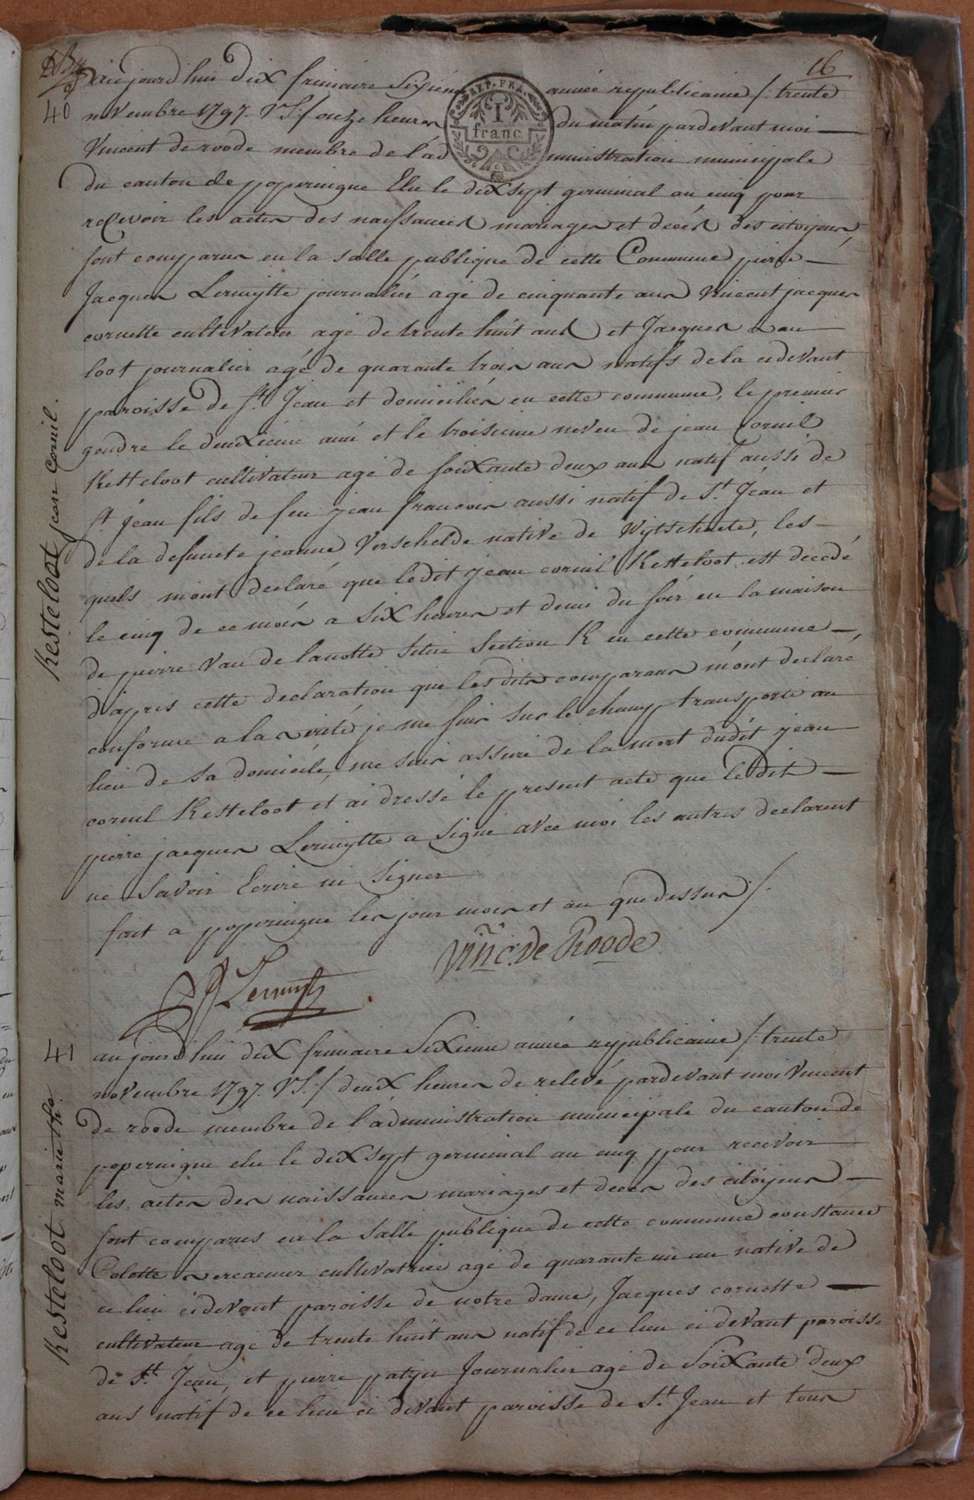 16
40
Kesteloot jean cornil.
aujourd'hui dix frimaire Sixiéme année republicaine /: trente
novembre 1797. V.S./ onze heures du matin pardevant moi —
Vincent de roode membre de l'administration municipale
du canton de poperingue Elu le dix sept germinal an cinq pour
recevoir les actes des naissances mariages et decés des citoyens
sont comparus en la salle publique de cette Commune pierre —
Jacques Lermytte journalier agé de cinquante ans Vincent jacques
cornette cultivateur agé de trente huit ans et Jacques
loot journalier agé de quarante trois ans natifs de la cidevant
paroisse de St. Jean et domiciliés en cette commune, le premier
gendre le deuxieme ami et le troisieme neveu de jean Cornil
Ketteloot cultivateur agé de soixante deux ans natif aussi de
St. jean fils de feu jean francois aussi natif de St. Jean et
de la defuncte jeanne Verschelde native de Wytschaete, les —
quels m'ont declaré que ledit jean corneil Ketteloot est decedé
le cinq de ce mois a six heures et demi du soir en la maison
de pierre Van de lanotte situé Section K en cette commune —,
d'apres cette declaration que les dits comparans m'ont declaré
conforme a la verité je me suis sur le champ transporté au
lieu de sa domicile, me suis assuré de la mort dudit jean
corneil Kesteloot et ai dressé le present acte que ledit —
pierre jacques Lermytte a signé avec moi les autres declarent
ne savoir Ecrire ni signer
fait a poperingue les jour mois et an que dessus /.
Vinc. de Roode
PJ Lermyt
41
Kesteloot marie the.
aujourd'hui dix frimaire Sixieme année republicaine /: trente
novembre 1797. V.S./ deux heures de relevé pardevant moi Vincent
de roode membre de l'administration municipale du canton de
poperingue elu le dix sept germinal an cinq pour recevoir
les actes des naissances mariages et decés des citoyens —
sont comparus en la salle publique de cette commune constance
Colette cultivatrice agé de quarante un an native de
ce lieu cidevant paroisse de notre dame, Jacques cornette —
cultivateur agé de trente huit ans natif de ce lieu ci devant paroisse
de St. Jean, et pierre patyn Journalier agé de Soixante deux
ans natif de ce lieu ci devant paroisse de St. Jean et tous